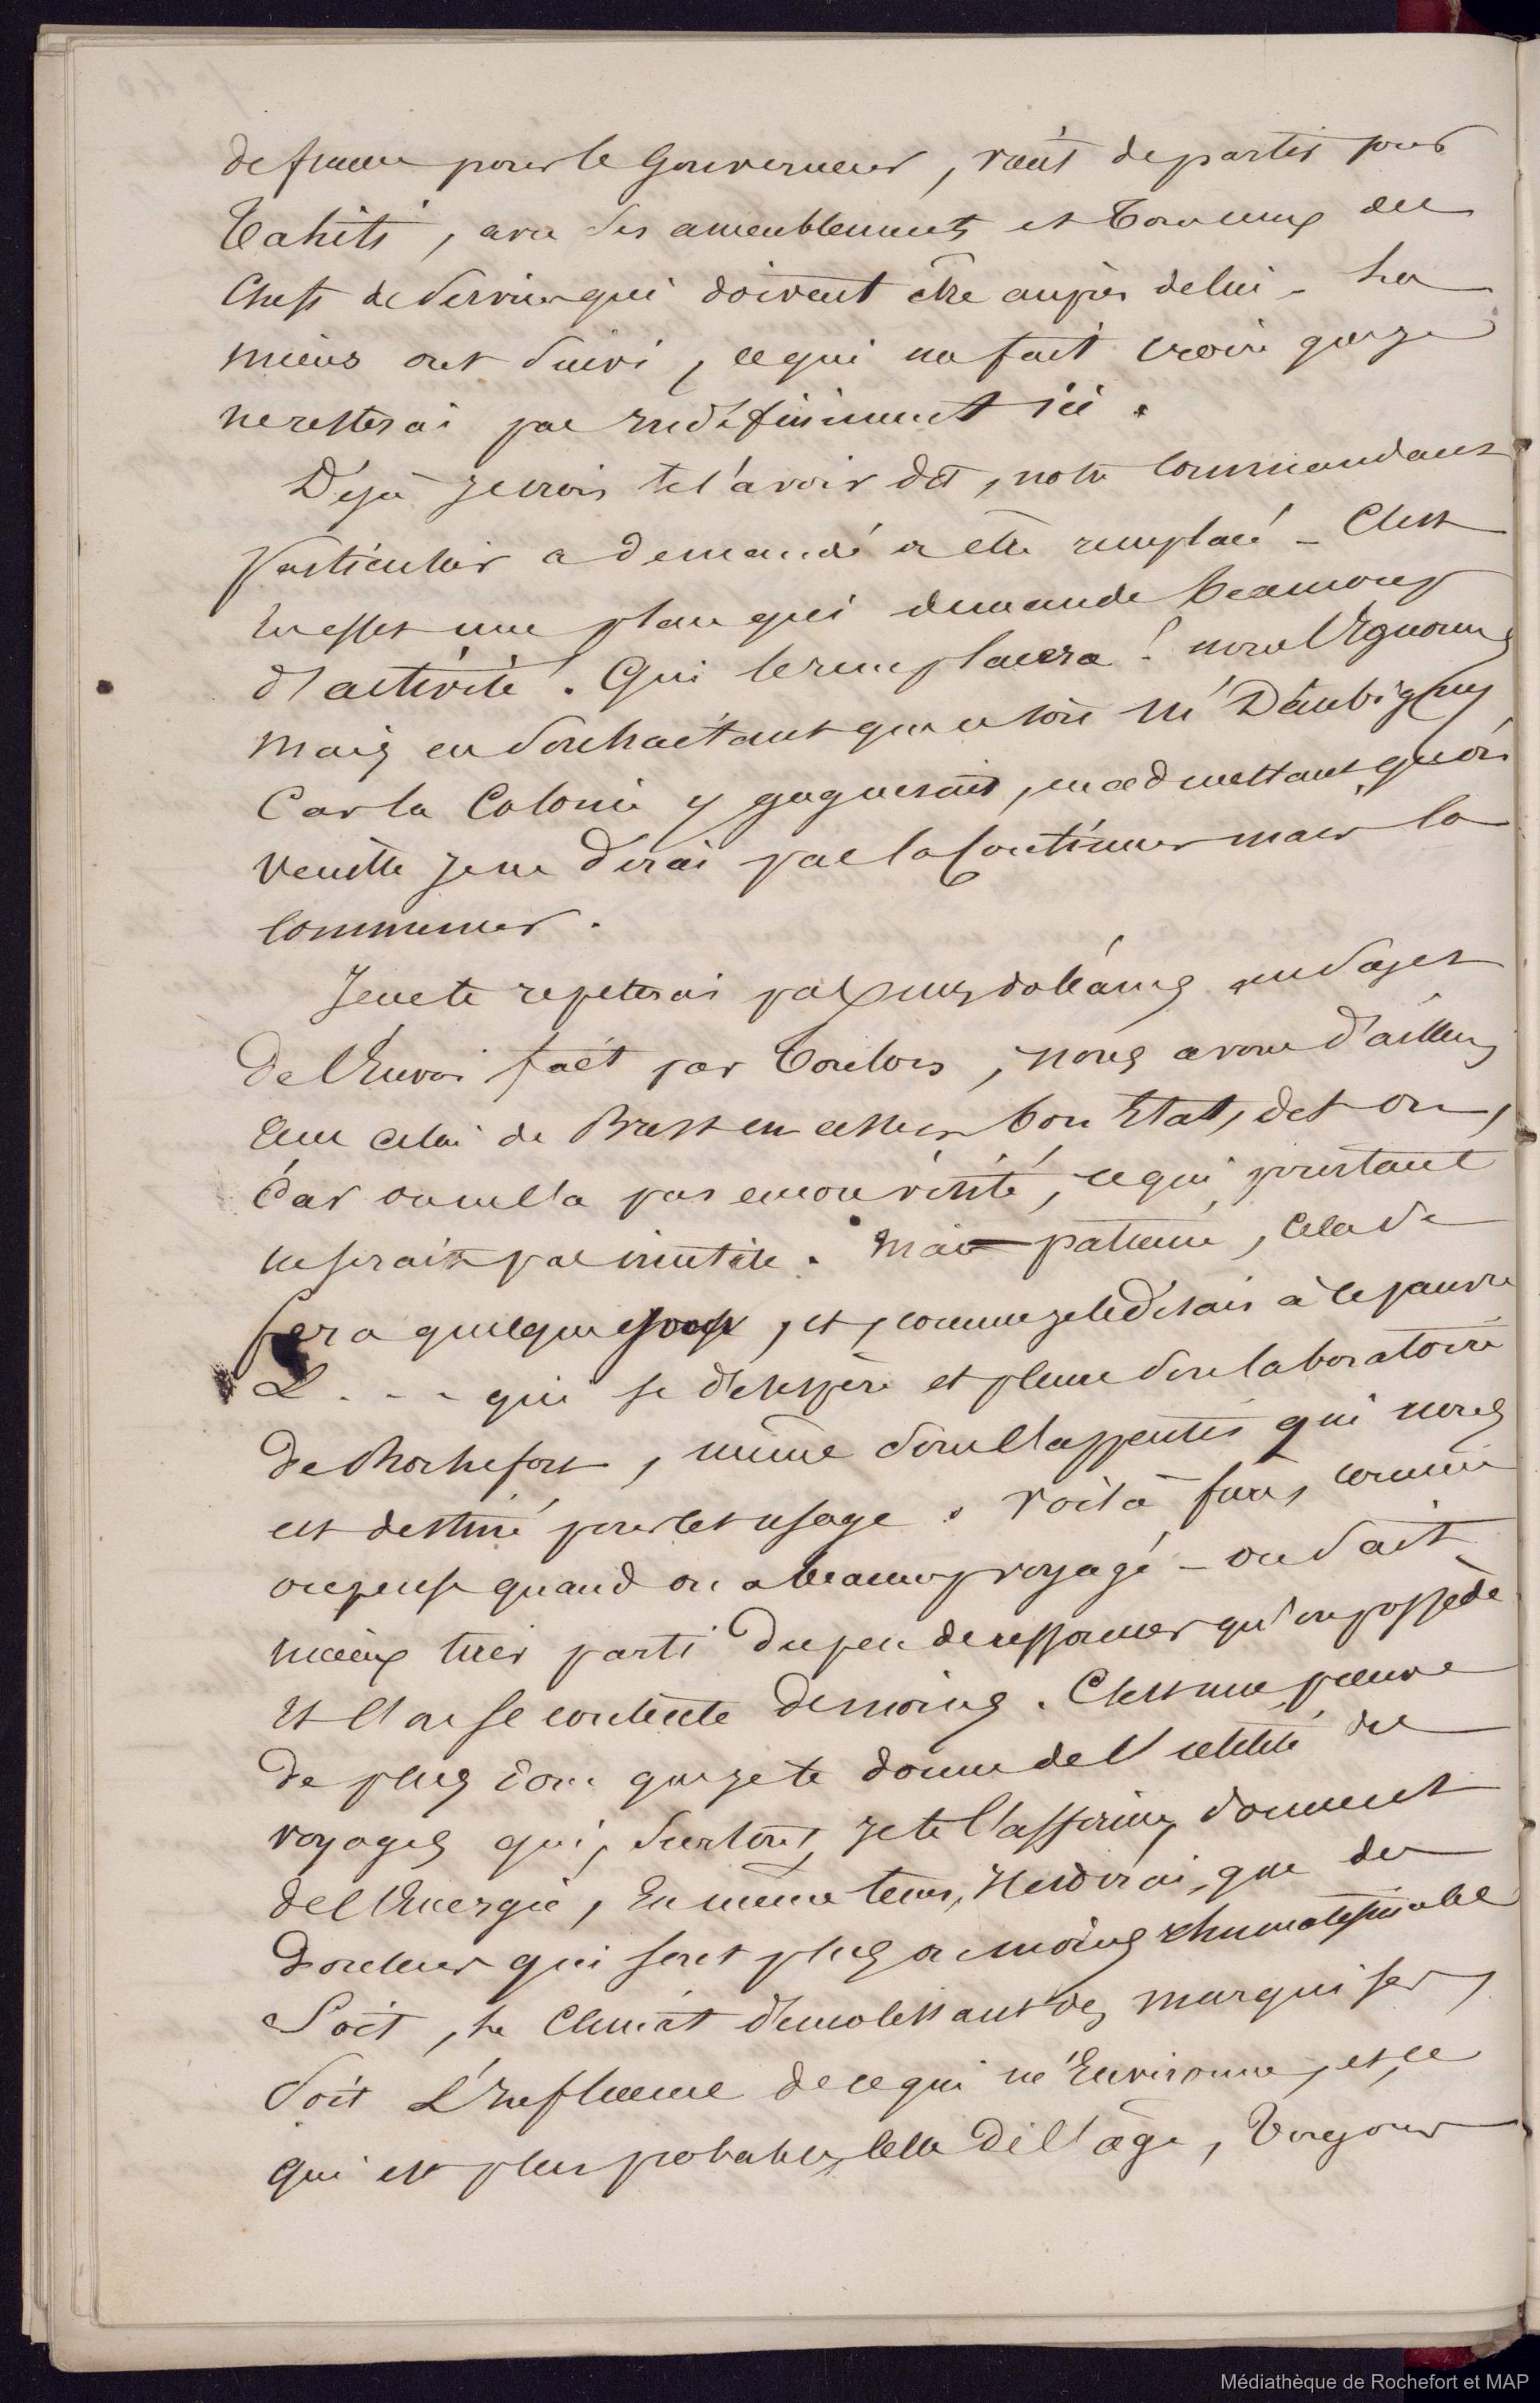 de france pour le Gouverneur, vient de partir pour
Tahiti, avec les ameublements et bureaux des
Chefs de Service qui doivent être auprès de lui - Les
miens ont suivi, ce qui me fait croire que je
ne resterai pas indéfiniment ici.
Déjà je crois te l'avoir dit, notre Commandant
particulier a demandé à être remplacé - C'est
en effet une place qui demande beaucoup
d'activité. Qui le remplacera? nous l'Ignorons
mais en souhaitant que ce soit Mr Daubigny
Car la Colonie y gagnerait, en admettant qu'on
veuille je ne dirai pas la Continuer mais la
Commencer.
Je ne te repeterai pas mes doléances au sujet
De l'Envoi fait par Toulon, nous avons d'ailleurs
eu celui de Brest en assez bon Etat, dit on,
Car on ne l'a pas encore visité, ce qui pourtant
ne serait pas inutile. Mais patience, cela se
fera quelque jour, et, comme je le disais à ce pauvre
L . . . qui se désespère et pleure son laboratoire
de Rochefort, même sous l'appentis qui nous
est destiné pour cet usage. Voilà frère, comme
on pense quand on a beaucoup voyagé - on sait
mieux tirer parti du peu de ressources qu'on possède
Et l'on se contente de moins. C'est une preuve
De plus donc que je te donne de l'utilité des
voyages qui, surtout, je te l'affirme, donnent
de l'Energie, En même tems, que des
Douleurs qui sont plus ou moins rhumatismales
Soit, le Climat des marquises,
Soit L'Influence de ce qui m'Environne, et, ce
qui est plus probable, celle de l'âge,